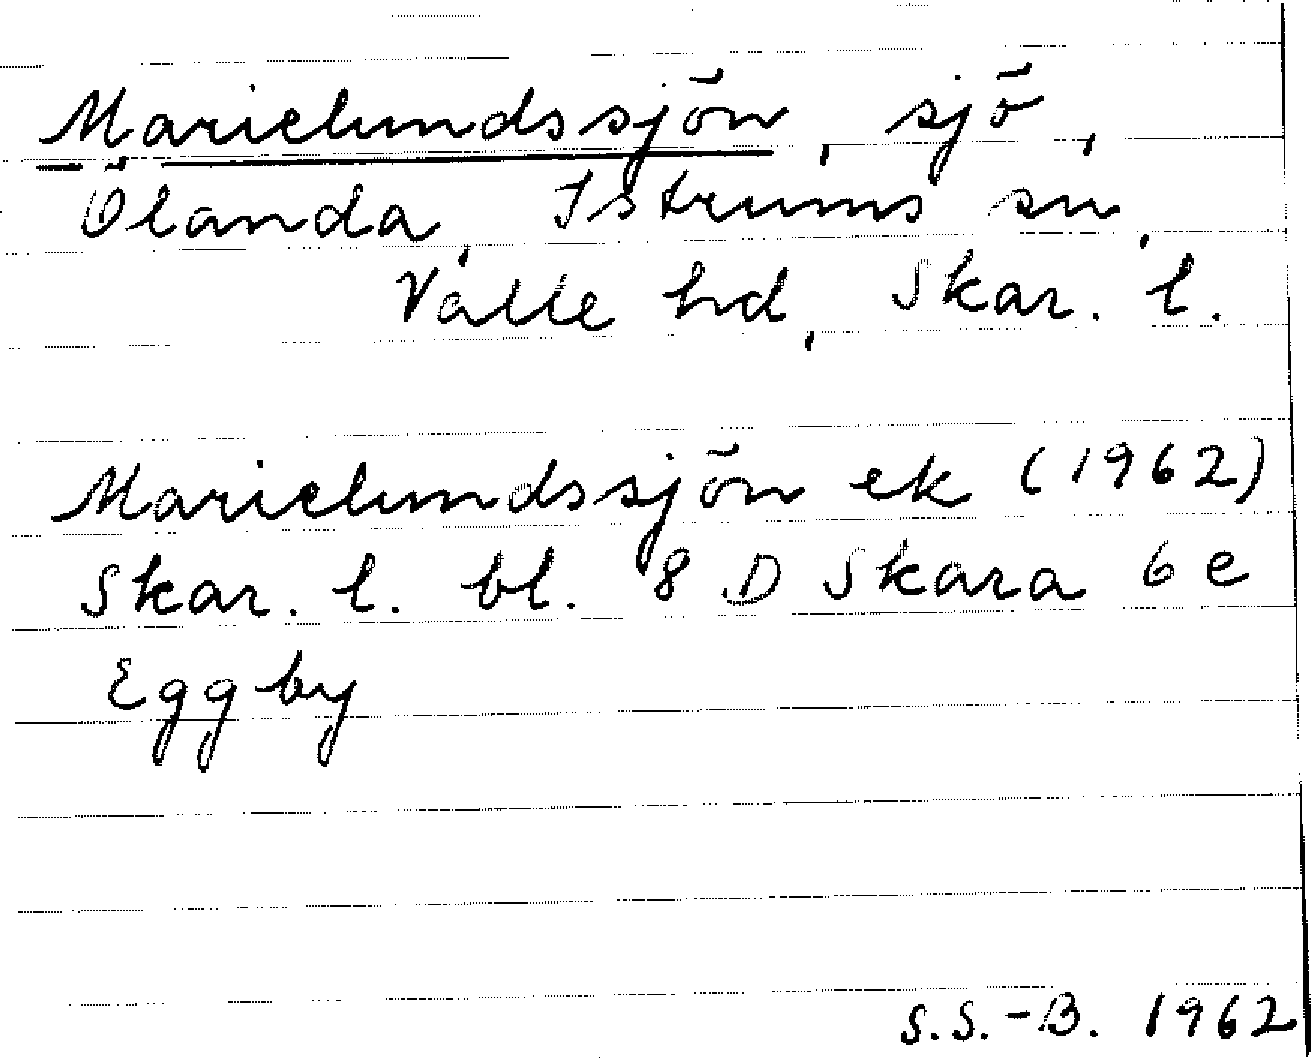 Marielundssjön, sjö,
Ölanda, Istrums sn,
Valle hd, Skar. l.
Marielundssjön ek (1962)
Skar. l. bl. 8 D Skara 6 e
Eggby
S.S.-B. 1962